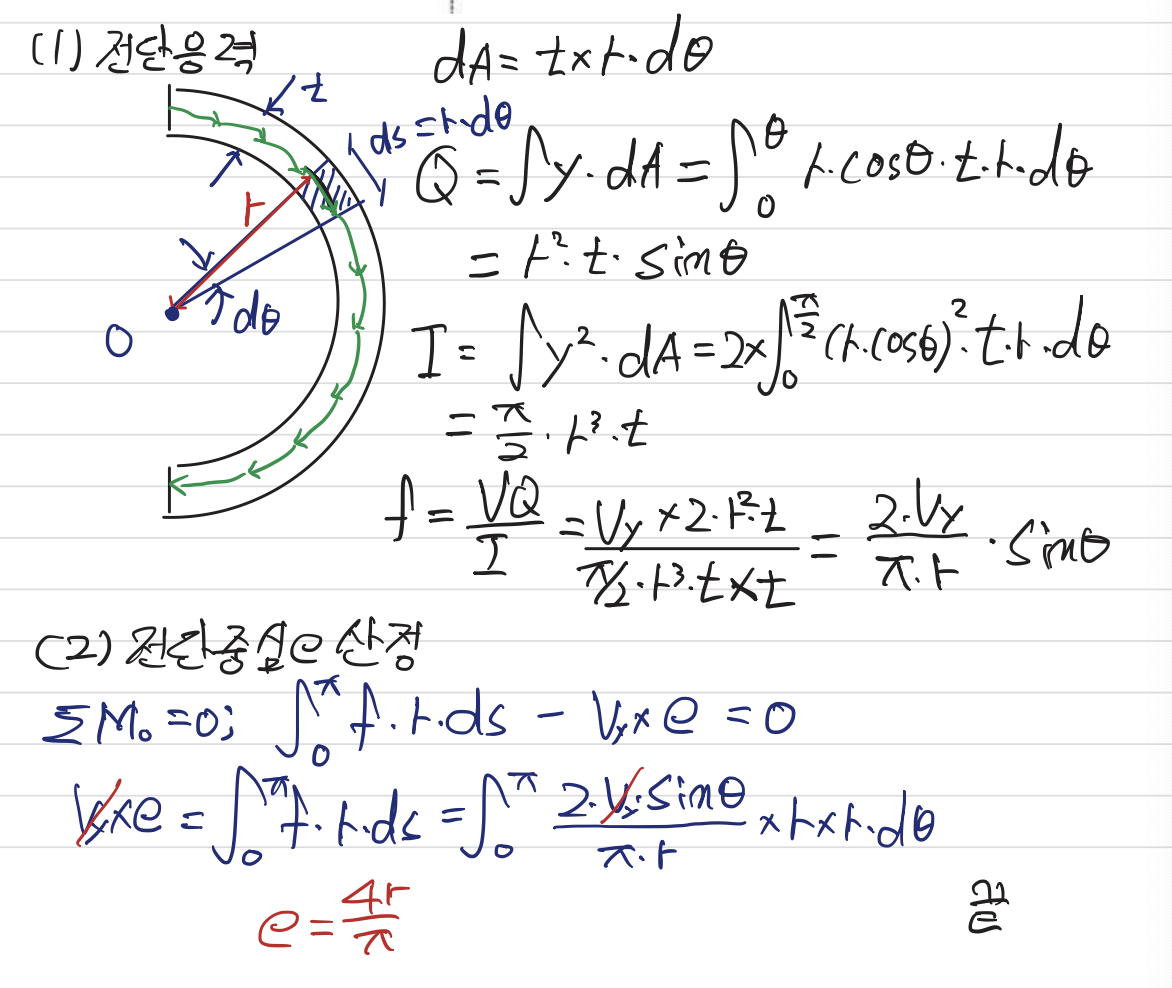 (1) 전단응력
dA = t×r·dθ
t
ds = r·dθ
r
dθ
O
Q = ∫y·dA = ∫₀^θ r·cosθ·t·r·dθ
= r²·t·sinθ
I = ∫y²·dA = 2×∫₀^(π/2) (r·cosθ)²·t·r·dθ
= π/2·r³·t
f = VQ/I = (Vy × 2·r²·t)/(π/2·r³·t×t) = (2·Vy)/(π·r) · sinθ
(2) 전단중심 e 산정
ΣM₀ = 0; ∫₀^π f·r·ds − Vy×e = 0
Vy×e = ∫₀^π f·r·ds = ∫₀^π (2·Vy·sinθ)/(π·r) × r×r·dθ
e = 4r/π
끝